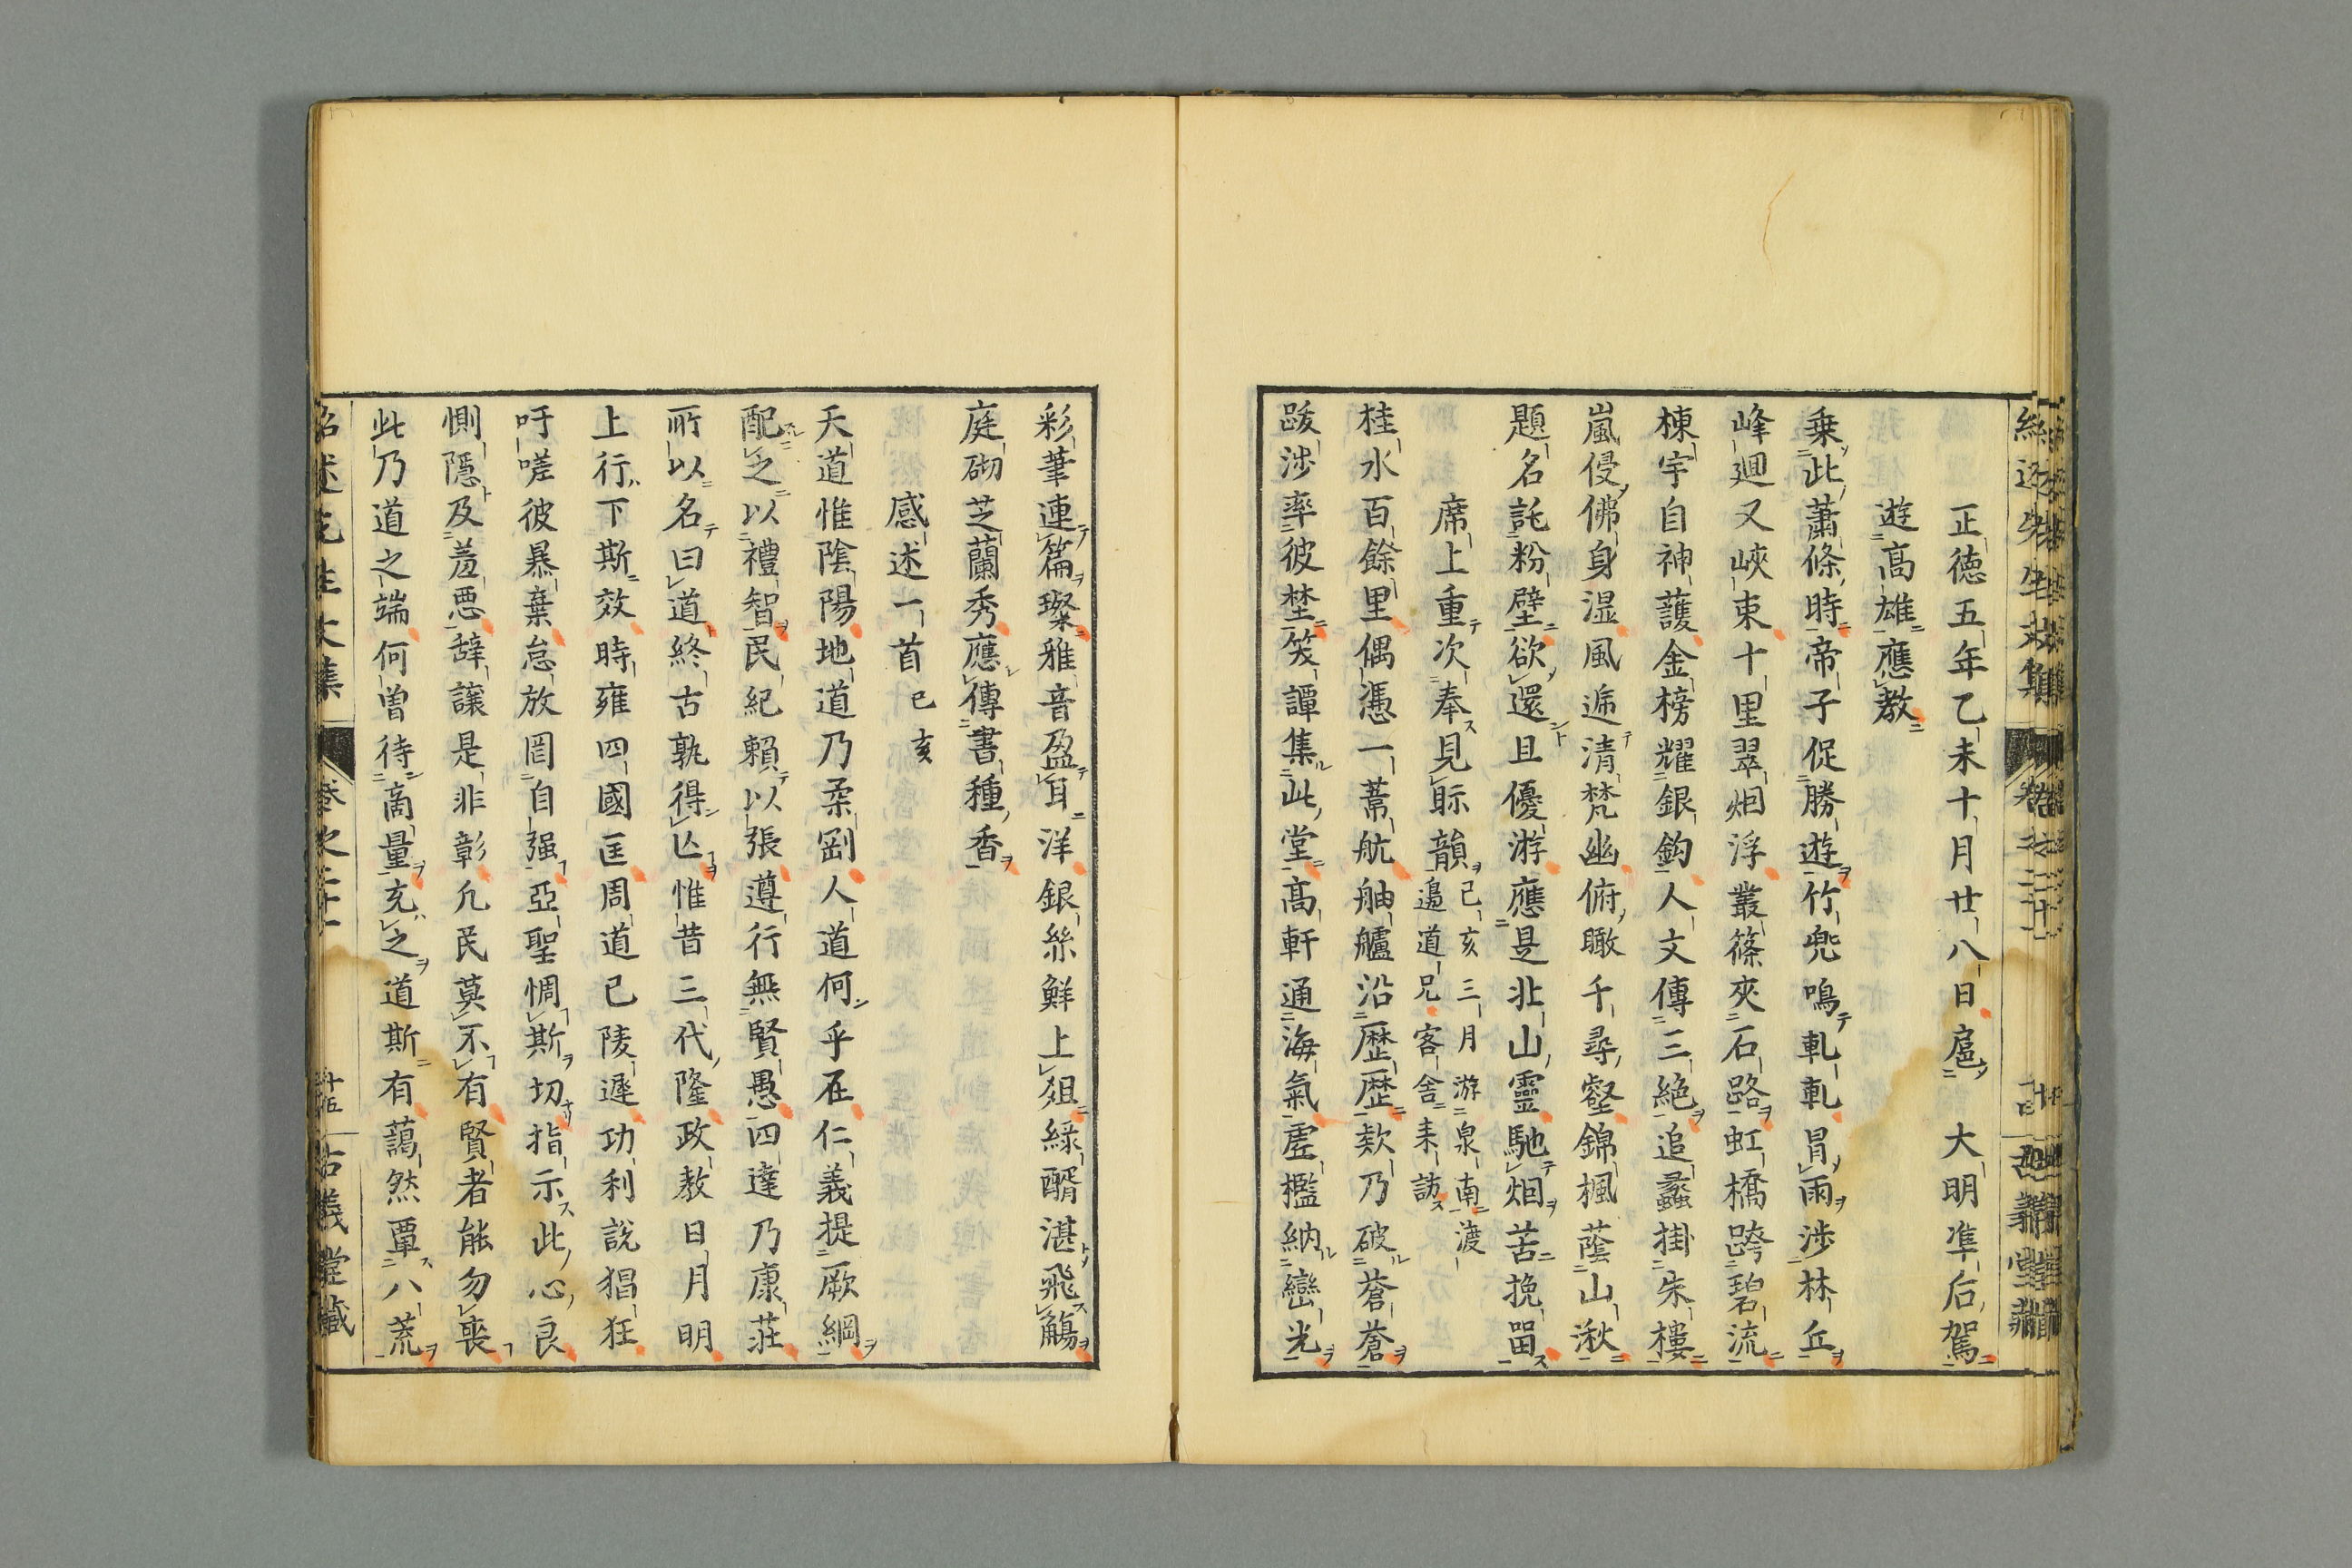 正德五年乙未十月廿八日扈　大明準后駕
遊高雄應教
乗此蕭條時帝子促勝遊竹兜鳴軋軋冒雨渉林丘
峰廻又峽束十里翠烟浮叢篠夾石路虹橋跨碧流
棟宇自神護金榜耀銀鈎人文傳三絶追蠡掛朱樓
嵐侵佛身湿風逓清梵幽俯瞰千尋壑錦楓蔭山湫
題名託粉壁欲還且優游應是北山靈馳烟苦挽畱
席上重次奉見眎韻
己亥三月游泉南渡
邉道兄客舎来訪
桂水百餘里偶憑一葦航舳艫沿歴歴欸乃破蒼蒼
跋渉率彼埜笑譚集此堂高軒通海氣虚檻納巒光
彩筆連篇璨雅音盈耳洋銀絲鮮上俎緑醑湛飛觴
庭砌芝蘭秀應傳書種香
感述一首 己亥
天道惟陰陽地道乃柔剛人道何乎在仁義提厥綱
配之以禮智民紀頼以張遵行無賢愚四達乃康莊
所以名曰道終古孰得亾惟昔三代隆政敎日月明
上行下斯效時雍四國匡周道已陵遲功利說猖狂
吁嗟彼暴棄怠放罔自强亞聖惆斯切指示此心良
惻隱及羞悪辞讓是非彰凢民莫不有賢者能勿喪
此乃道之端何曽待商量充之道斯有藹然覃八荒
紹述先生文集　卷之二十一　十五　古義堂藏